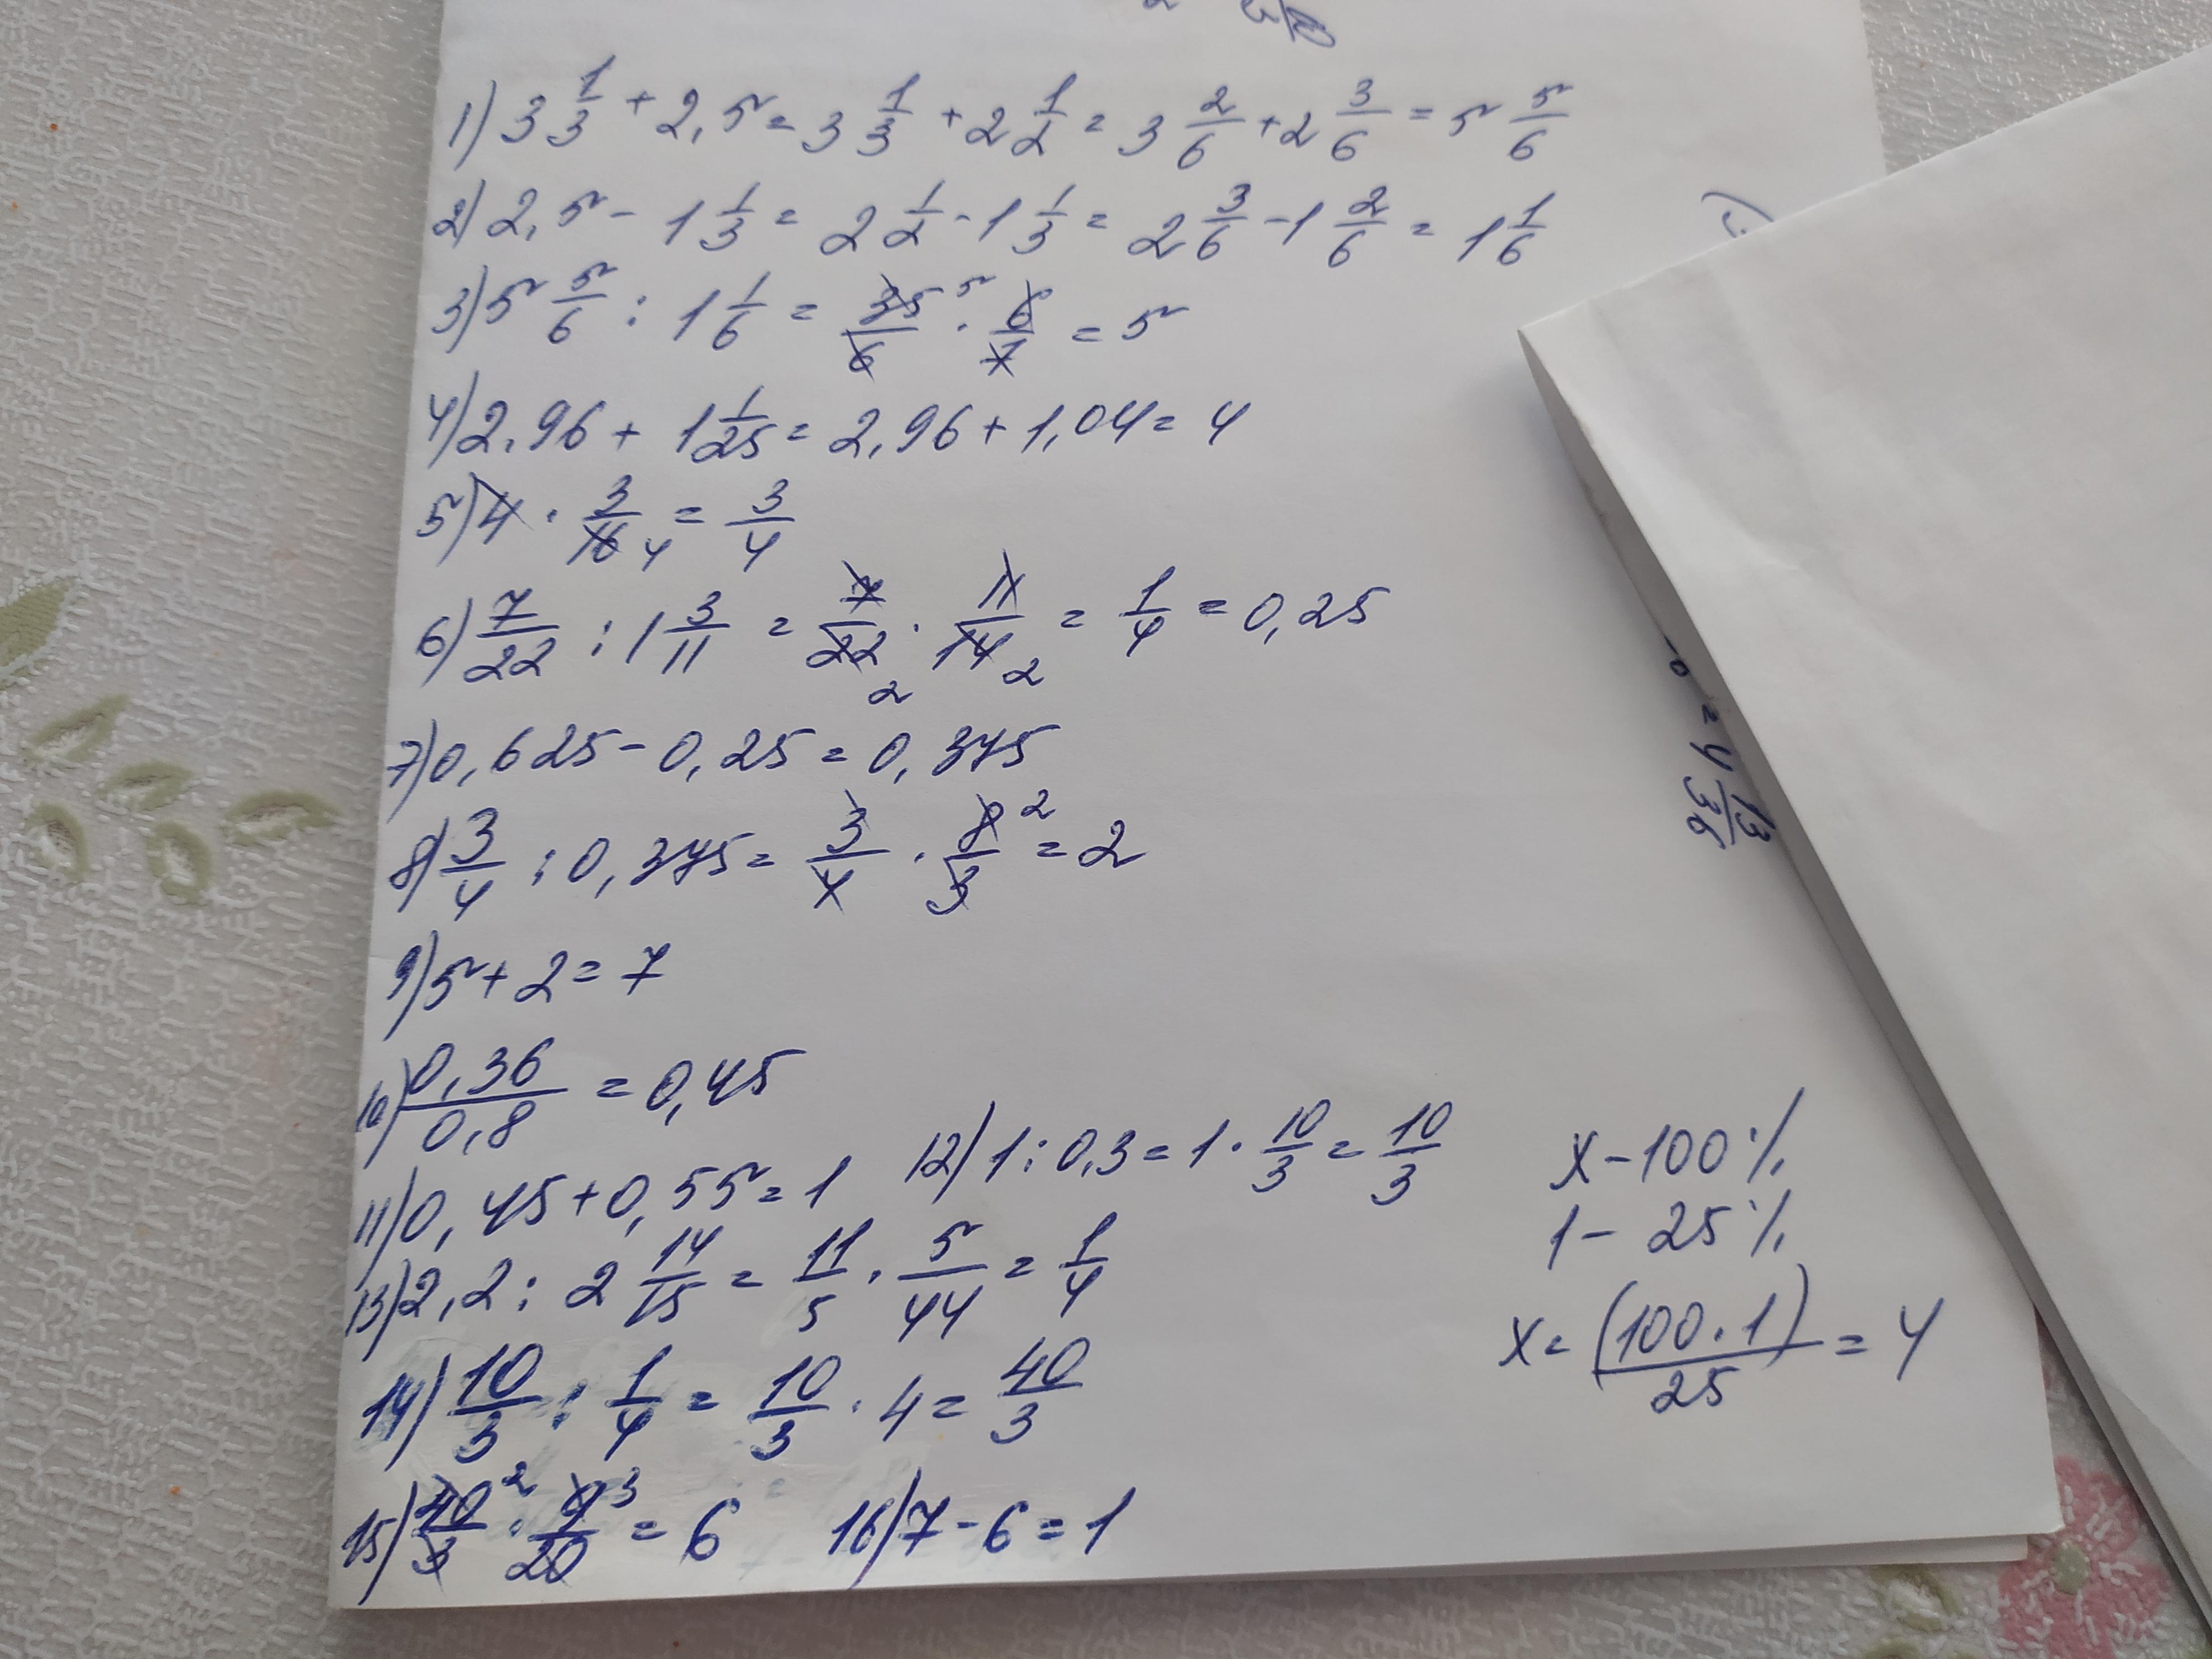 1) 3 1/3 + 2,5 = 3 1/3 + 2 1/2 = 3 2/6 + 2 3/6 = 5 5/6
2) 2,5 - 1 1/3 = 2 1/2 - 1 1/3 = 2 3/6 - 1 2/6 = 1 1/6
3) 5 5/6 : 1 1/6 = 35/6 5 · 6/7 = 5
4) 2,96 + 1 1/25 = 2,96 + 1,04 = 4
5) 4 · 3/16 4 = 3/4
6) 7/22 : 1 3/11 = 7/22 2 · 11/14 2 = 1/4 = 0,25
7) 0,625 - 0,25 = 0,375
8) 3/4 : 0,375 = 3/4 · 8/3 2 = 2
9) 5 + 2 = 7
10) 0,36/0,8 = 0,45
11) 0,45 + 0,55 = 1
12) 1 : 0,3 = 1 · 10/3 = 10/3
13) 2,2 : 2 14/15 = 11/5 · 5/44 = 1/4
14) 10/3 : 1/4 = 10/3 · 4 = 40/3
15) 40/3 2 · 9/20 3 = 6
16) 7 - 6 = 1
x - 100%
1 - 25%
x = (100 · 1)/25 = 4
= 4 13/36